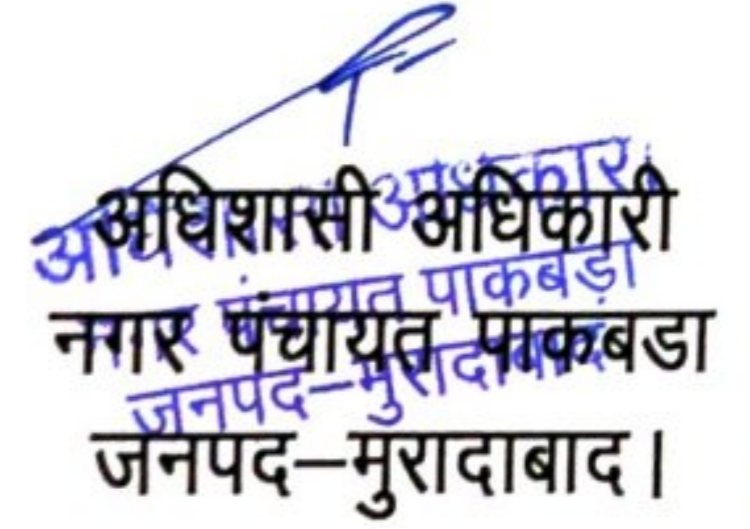 अधिशासी अधिकारी
नगर पंचायत पाकबडा
जनपद–मुरादाबाद।
अधिशासी अधिकारी
नगर पंचायत पाकबड़ा
जनपद–मुरादाबाद